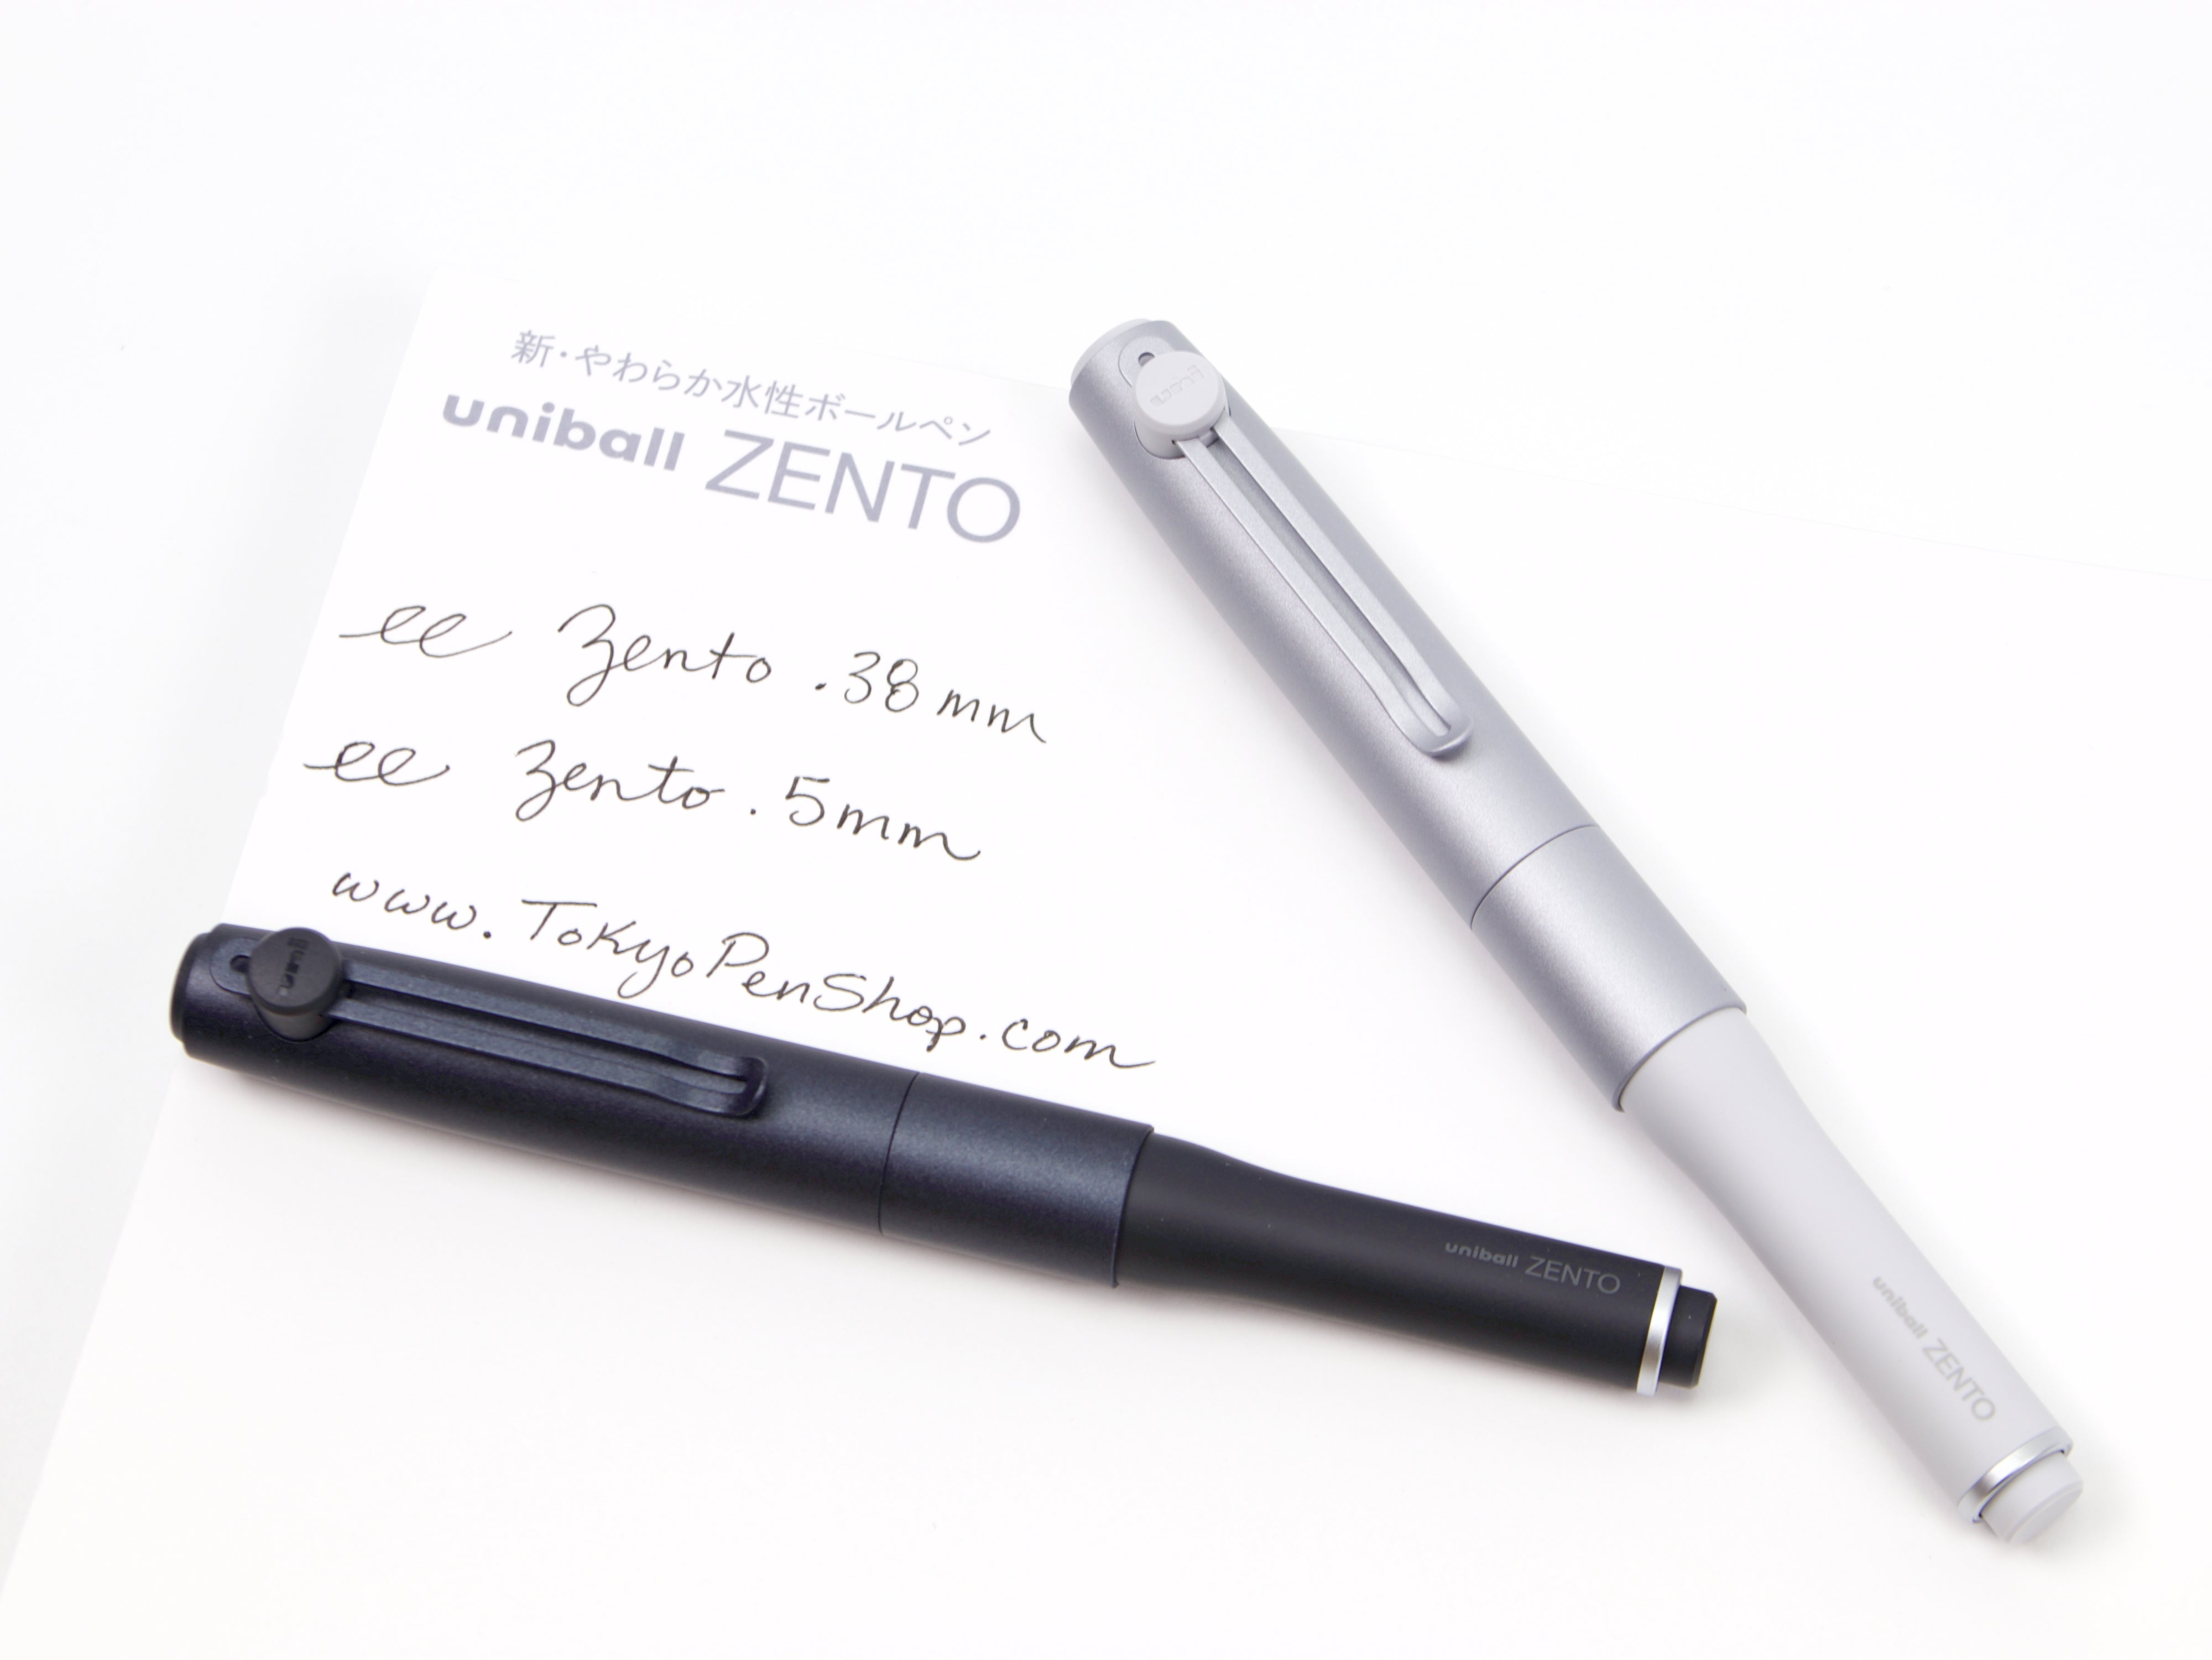 新・やわらか水性ボールペン
uniball ZENTO
ee Zento .38 mm
ee Zento .5mm
www.TokyoPenShop.com
uni
uni
uniball ZENTO
uniball ZENTO